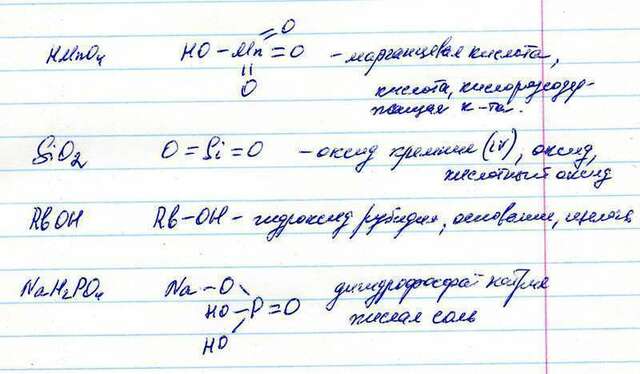 HMnO4 HO-Mn=O =O - марганцевая кислота,
=
O кислота, кислородсодер-
жащая к-та.
SiO2 O=Si=O - оксид кремния (IV), оксид,
кислотный оксид
RbOH Rb-OH - гидроксид рубидия, основание, щелочь
NaH2PO4 Na-O дигидрофосфат натрия
HO-P=O кислая соль
HO